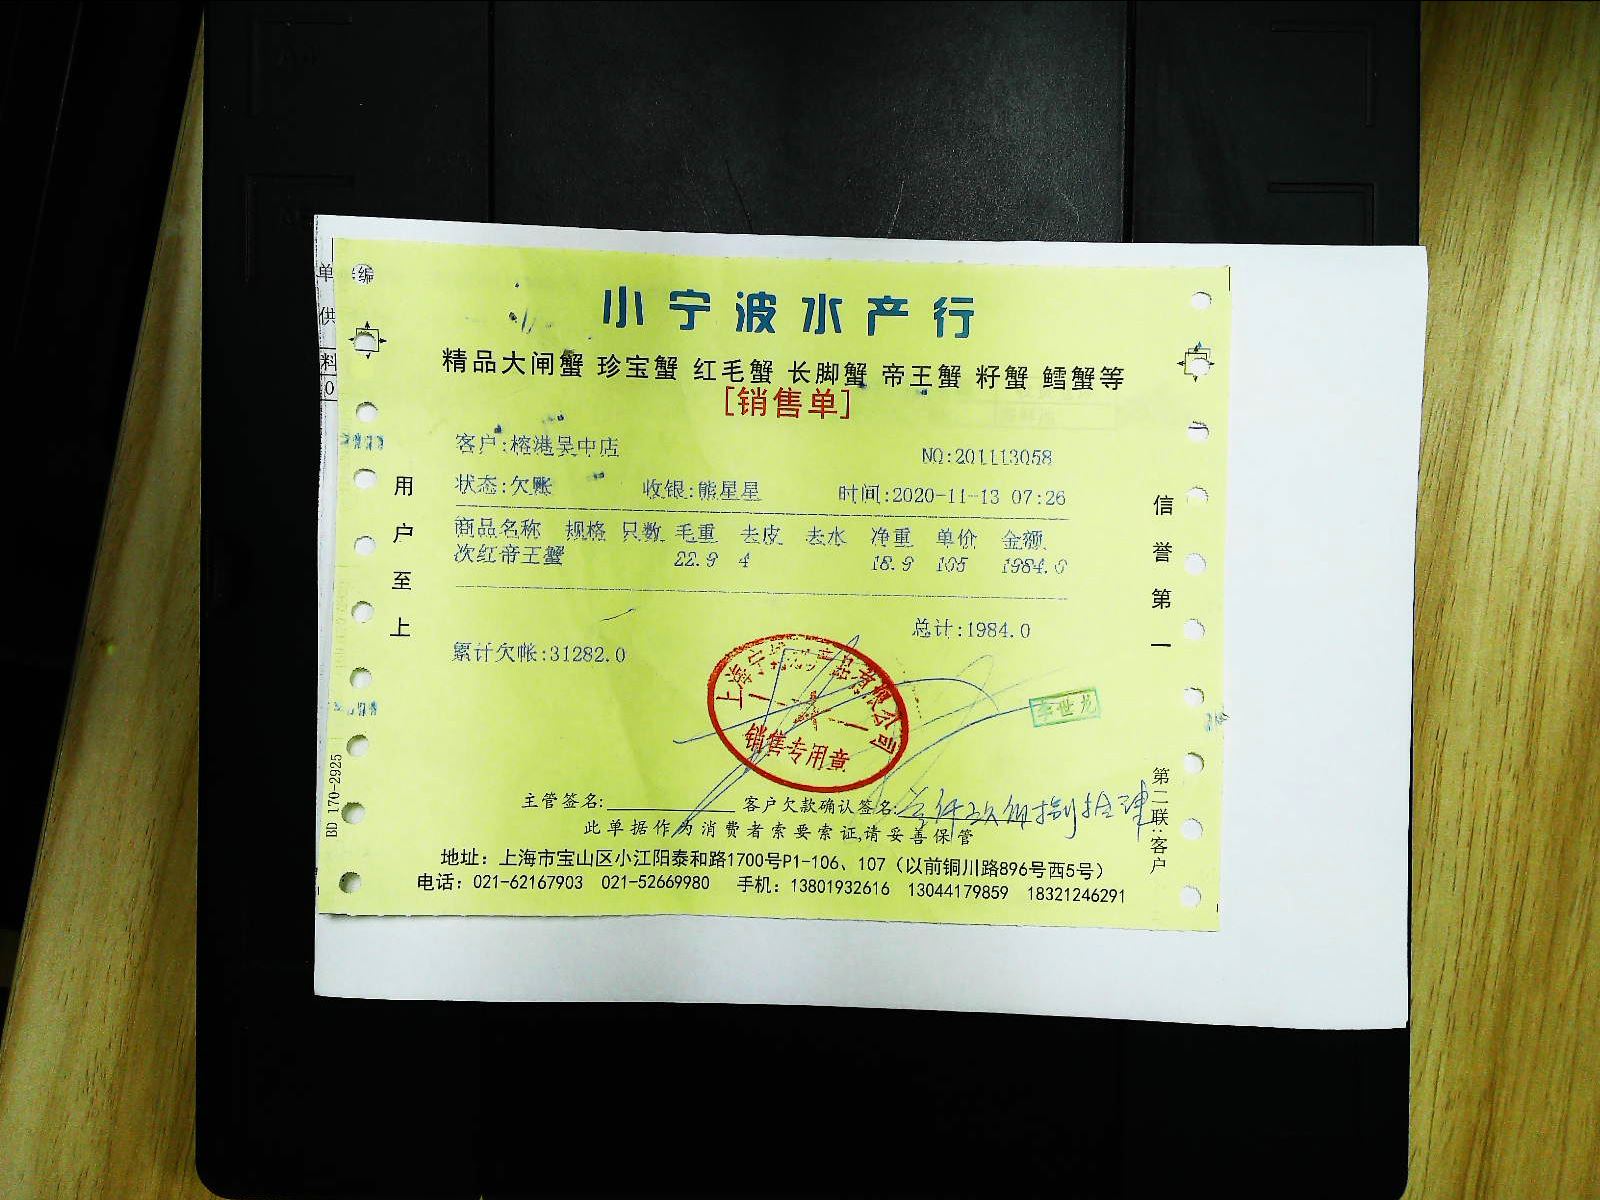 小宁波水产行
精品大闸蟹 珍宝蟹 红毛蟹 长脚蟹 帝王蟹 籽蟹 鳕蟹等
[销售单]
客户:榕港吴中店
NO:201113058
状态:欠账 收银:熊星星 时间:2020-11-13 07:26
商品名称 规格 只数 毛重 去皮 去水 净重 单价 金额
次红帝王蟹 22.9 4 18.9 105 1984.0
总计:1984.0
累计欠帐:31282.0
销售专用章
李世龙
主管签名: 客户欠款确认签名:
此单据作为消费者索要索证,请妥善保管
地址：上海市宝山区小江阳泰和路1700号P1-106、107（以前铜川路896号西5号）
电话：021-62167903 021-52669980 手机：13801932616 13044179859 18321246291
用户至上
信誉第一
第二联:客户
BD 170-2925
单
供
料
0
编